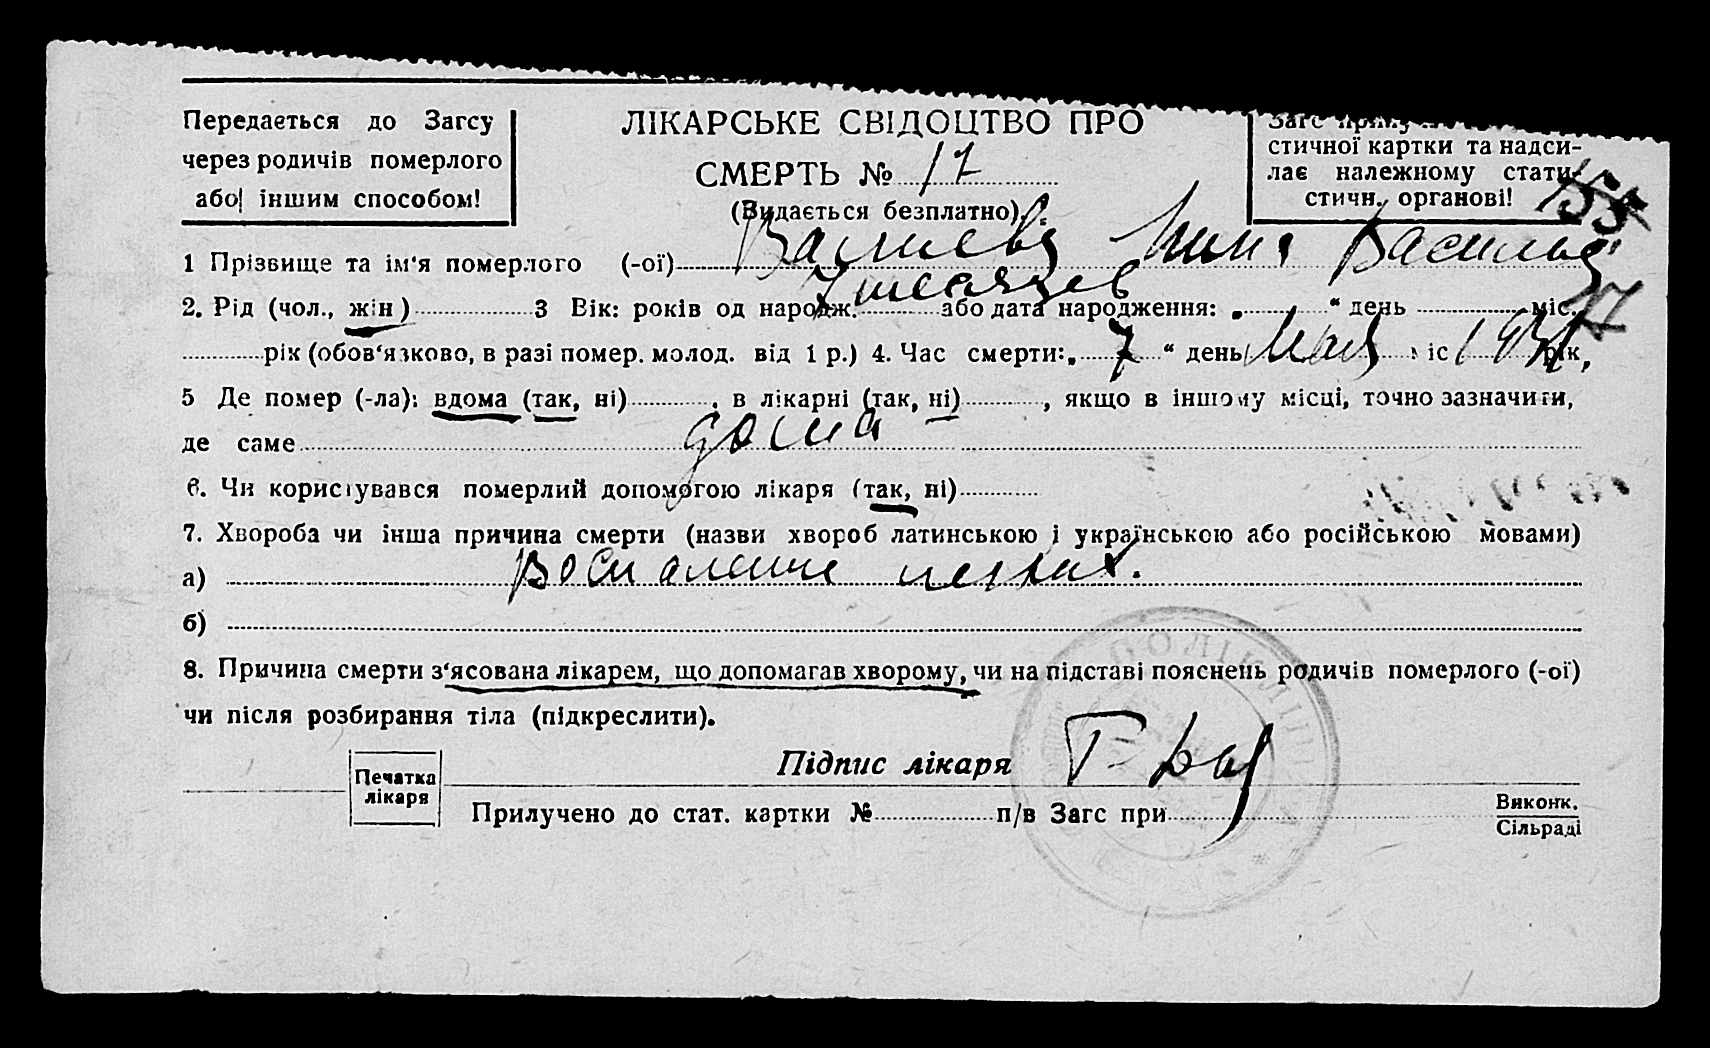 Передається до Загсу
через родичів померлого
або іншим способом!
ЛІКАРСЬКЕ СВІДОЦТВО ПРО
СМЕРТЬ № 17
(Видається безплатно).
стичної картки та надси-
лає належному стати-
стичн. органові!
155
1 Прізвище та ім'я померлого (-ої) Нина Василье
7 месяцев
2. Рід (чол., жін) 3 Вік: років од народж. або дата народження: „ “ день міс.
17
рік (обов'язково, в разі помер. молод. від 1 р.) 4. Час смерти: „ 7 “ день Мая міс рік,
5 Де помер (-ла): вдома (так, ні) , в лікарні (так, ні) , якщо в іншому місці, точно зазначити,
де саме дома
6. Чи користувався померлий допомогою лікаря (так, ні)
7. Хвороба чи інша причина смерти (назви хвороб латинською і українською або російською мовами)
а) Воспаление легких.
б)
8. Причина смерти з'ясована лікарем, що допомагав хворому, чи на підставі пояснень родичів померлого (-ої)
чи після розбирання тіла (підкреслити).
Підпис лікаря
Печатка
лікаря
Прилучено до стат. картки № п/в Загс при Виконк.
Сільраді